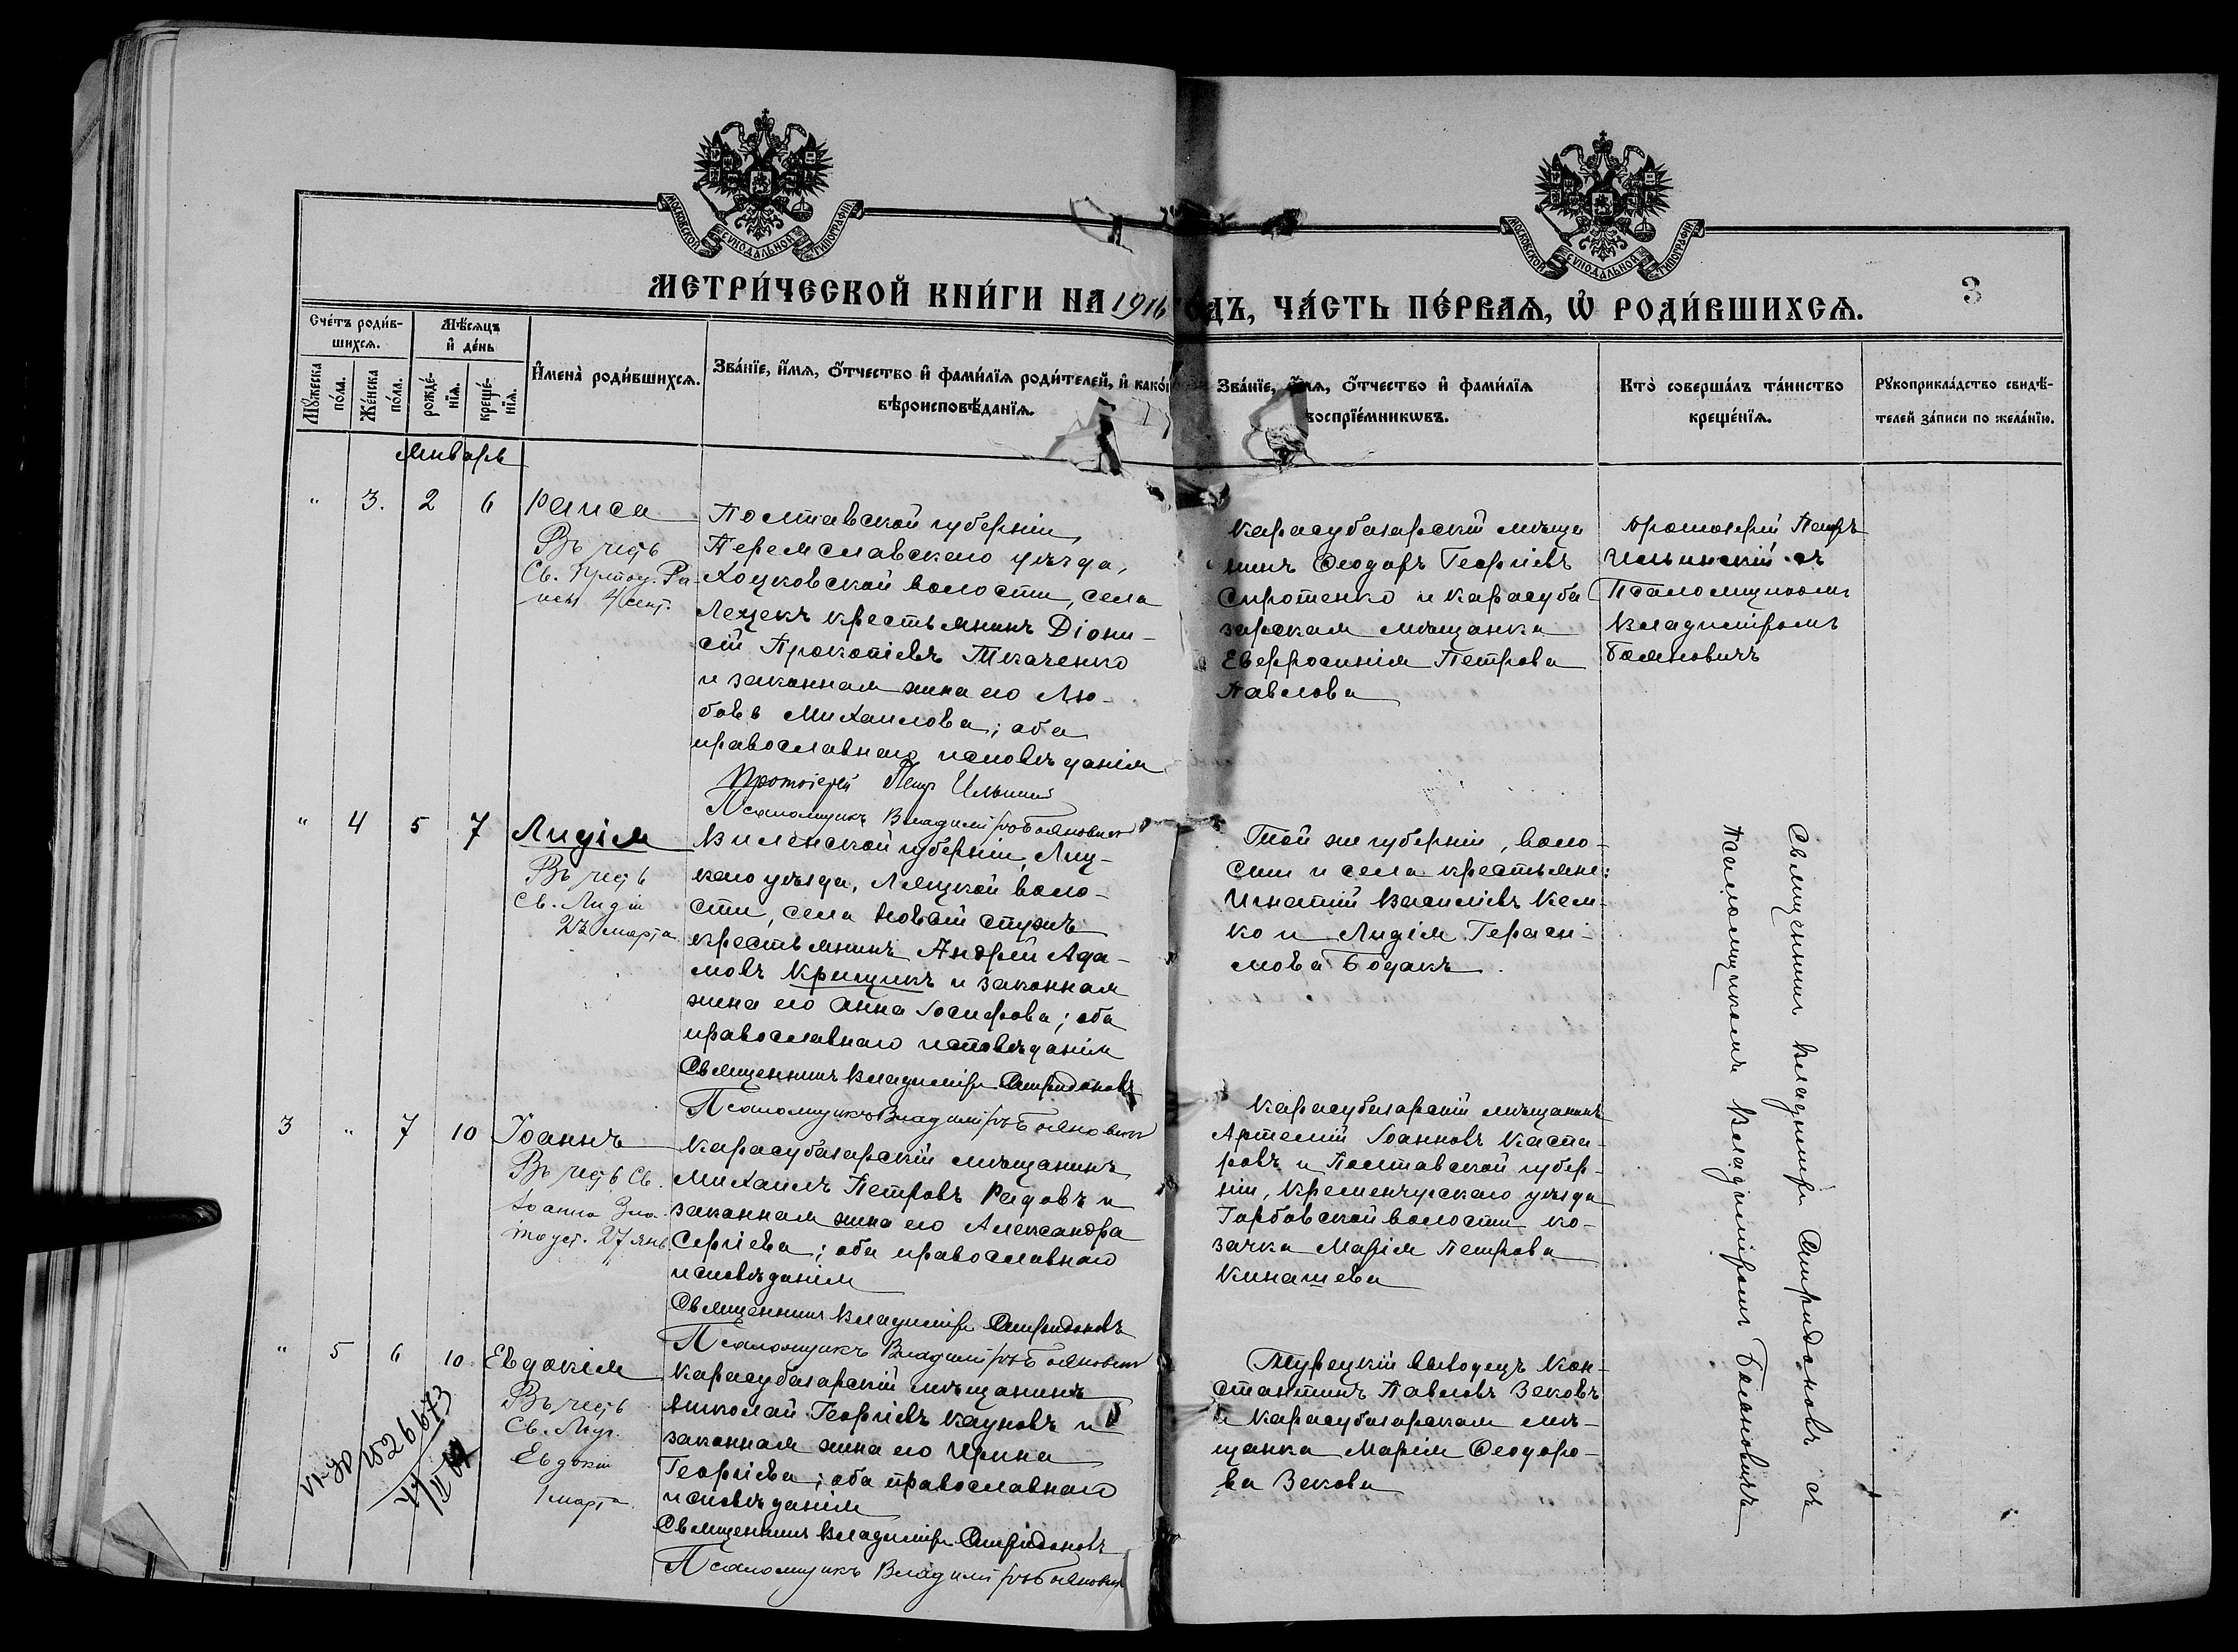 МОСКОВСКОЙ СѴНОДАЛЬНОЙ ТИПОГРАФІИ
МОСКОВСКОЙ СѴНОДАЛЬНОЙ ТИПОГРАФІИ
МЕТРИ́ЧЕСКОЙ КНИ́ГИ НА 1916 ГОДЪ, ЧА́СТЬ ПЕ́РВАѦ, Ѡ҆ РОДИ́ВШИХСѦ.
3
Сче́тъ роди́в-
шихсѧ.
Мѣ́сѧцъ
и҆ де́нь
Мꙋ́жеска
по́ла.
Же́нска
по́ла.
рожде́-
нїѧ.
креще́-
нїѧ.
И҆мена̀ роди́вшихсѧ.
Зва́нїе, и҆́мѧ, ѻ҆́тчество и҆ фами́лїѧ роди́телей, и҆ како́гѡ
вѣроисповѣ́данїѧ.
Зва́нїе, и҆́мѧ, ѻ҆́тчество и҆ фами́лїѧ
воспрїе́мникѡвъ.
Кто̀ соверша́лъ та́инство
креще́нїѧ.
Рꙋкоприкла́дство свидѣ́-
телей за́писи по жела́нїю.
Январь
" 3. 2 6
Раиса
Въ честь
Св. Раи-
исы 4 сент.
Полтавской губерніи,
Переяславскаго уѣзда,
Хоцковской волости, села
Лецекъ крестьянинъ Діони-
сій Прокопіевъ Ткаченко
и законная жена его Лю-
бовь Михаилова; оба
православнаго исповѣданія
Протоіерей Петръ Ильинскій
Псаломщикъ Владиміръ Бояновичъ
Карасубазарскій мѣща
нинъ Ѳеодоръ Георгіевъ
Сиротенко и Карасуба
зарская мѣщанка
Евфросинія Петрова
Павлова
Протоіерей Петръ
Ильинскій съ
Псаломщикомъ
Владиміромъ
Бояновичъ
" 4 5 7
Лидія
Въ честь
Св. Лидіи
23 марта
Виленской губерніи, Лид-
каго уѣзда, Лядской воло-
сти, села Новый
крестьянинъ Андрей Ада-
мовъ Крищикъ и законная
жена его Анна Іосифова; оба
православнаго исповѣданія
Священникъ Владиміръ Спиридоновъ
Псаломщикъ Владиміръ Бояновичъ
Той же губерніи, воло-
сти и села крестьяне:
Игнатій Василіевъ Кем-
ко и Лидія Гераси-
мова Бодакъ.
Священникъ Владиміръ Спиридоновъ съ
Псаломщикомъ Владиміромъ Бояновичъ
3 " 7 10
Іоаннъ
Въ честь Св.
Іоанна Зла-
тоуст. 27 янв.
Карасубазарскій мѣщанинъ
Михаилъ Петровъ Радовъ и
законная жена его Александра
Сергіева; оба православнаго
исповѣданія
Священникъ Владиміръ Спиридоновъ
Псаломщикъ Владиміръ Бояновичъ
Карасубазарскій мѣщанинъ
Артемій Іоанновъ Каспа-
ровъ и Полтавской губер-
ніи, Кременчугскаго уѣзда
Горбовской волости ко-
зачка Марія Петрова
Кинашева
" 5 6 10
Евдокія
Въ честь
Св. Муч.
Евдокіи
1 марта
Карасубазарскій мѣщанинъ
Николай Георгіевъ Кауновъ и
законная жена его Ирина
Георгіева; оба православнаго
исповѣданія
Священникъ Владиміръ Спиридоновъ
Псаломщикъ Владиміръ Бояновичъ
Турецкій выходецъ Кон-
стантинъ Павловъ Зековъ
и Карасубазарская мѣ-
щанка Марія Ѳеодоро-
ва Зекова
1526673